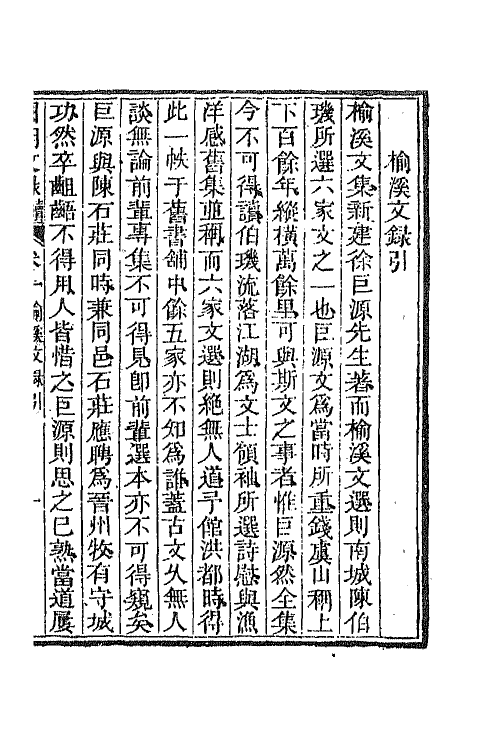 榆溪文錄引
榆溪文集新建徐巨源先生著而榆溪文選則南城陳伯
璣所選六家文之一也巨源文爲當時所重錢虞山稱上
下百餘年縱橫萬餘里可與斯文之事者惟巨源然全集
今不可得讀伯璣流落江湖爲文士領袖所選詩慰與漁
洋感舊集並稱而六家文選則絶無人道予館洪都時得
此一帙于舊書舖中餘五家亦不知爲誰蓋古文久無人
談無論前輩專集不可得見卽前輩選本亦不可得窺矣
巨源與陳石莊同時兼同邑石莊應聘爲晉州牧有守城
功然卒齟齬不得用人皆惜之巨源則思之已熟當道屢
文錄 卷一 榆溪文錄引 一